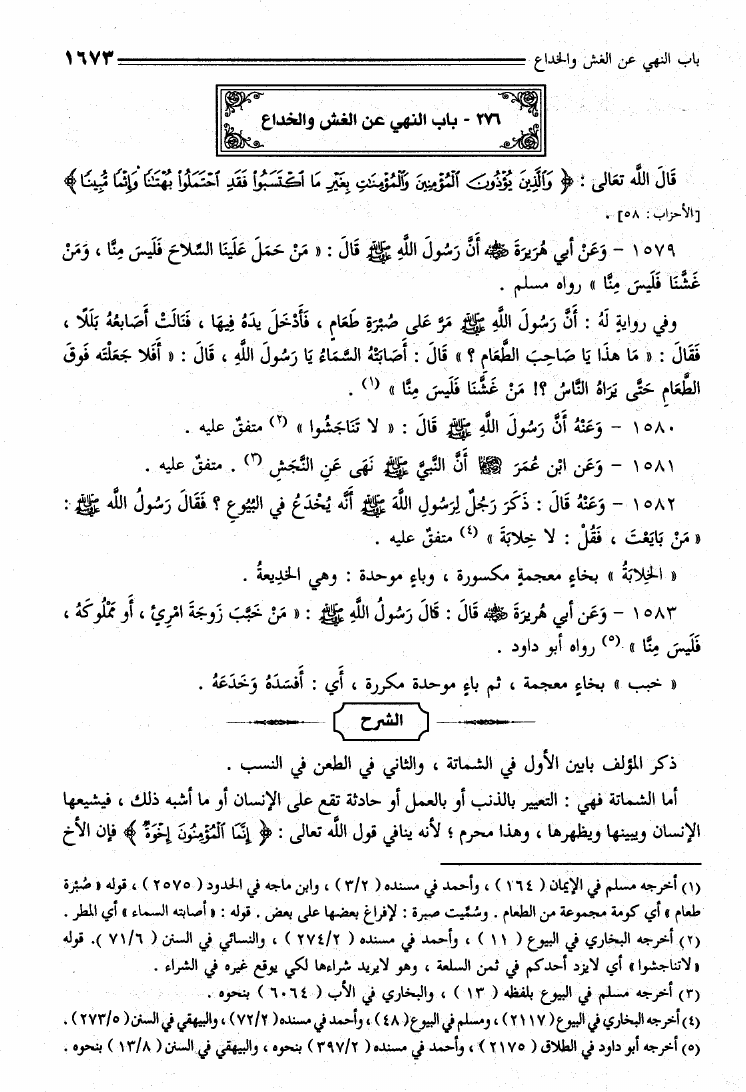 باب النهي عن الغش والخداع ١٦٧٣
٢٧٦ - باب النهي عن الغش والخداع
قَالَ اللَّه تعَالى : ﴿ وَالَّذِينَ يُؤْذُونَ الْمُؤْمِنِينَ وَالْمُؤْمِنَاتِ بِغَيْرِ مَا اكْتَسَبُوا فَقَدِ احْتَمَلُوا بُهْتَانًا وَإِثْمًا مُّبِينًا ﴾
[الأحزاب: ٥٨] .
١٥٧٩ - وَعَنْ أبي هُرَيرَةَ ﷺ أَنَّ رَسُولَ اللَّهِ ﷺ قَالَ : « مَنْ حَمَلَ عَلَينَا السِّلاحَ فَلَيسَ مِنَّا ، وَمَنْ
غَشَّنَا فَلَيسَ مِنَّا » رواه مسلم .
وفي روايةٍ لَهُ : أَنَّ رَسُولَ اللَّهِ ﷺ مَرَّ عَلى صُبْرَةِ طَعَامٍ ، فَأَدْخَلَ يدَهُ فِيهَا ، فَنَالَتْ أَصَابعُهُ بَلَلًا ،
فَقَالَ : « مَا هذَا يَا صَاحِبَ الطَّعَامِ ؟ » قَالَ : أَصَابَتْهُ السَّمَاءُ يَا رَسُولَ اللَّهِ ، قَالَ : « أَفَلا جَعَلْتَه فَوقَ
الطَّعَامِ حَتَّى يَرَاهُ النَّاسُ ؟! مَنْ غَشَّنَا فَلَيسَ مِنَّا » (١) .
١٥٨٠ - وَعَنْهُ أَنَّ رَسُولَ اللَّهِ ﷺ قَالَ : « لا تَنَاجَشُوا » (٢) متفقٌ عليه .
١٥٨١ - وَعَن ابْن عُمَرَ أَنَّ النَّبيَّ ﷺ نَهَى عَنِ النَّجَشِ (٣) . متفقٌ عليه .
١٥٨٢ - وَعَنْهُ قَالَ : ذَكَرَ رَجُلٌ لِرَسُولِ اللَّهِ ﷺ أَنَّه يُخْدَعُ في البُيُوعِ ؟ فَقَالَ رَسُولُ اللَّه ﷺ :
« مَنْ بَايَعْتَ ، فَقُلْ : لا خِلابَةَ » (٤) متفقٌ عليه .
« الخِلابَةُ » بخاءٍ معجمةٍ مكسورة ، وباءٍ موحدة : وهي الخديعةُ .
١٥٨٣ - وَعَن أبي هُريرَةَ قَالَ : قَالَ رَسُولُ اللَّهِ ﷺ : « مَنْ خَبَّبَ زَوجَةَ امْرِئٍ ، أَو مَمْلُوكَهُ ،
فَلَيسَ مِنَّا » (٥) رواه أبو داود .
« خبب » بخاءٍ معجمة ، ثم باءٍ موحدة مكررة ، أَي : أَفسَدَهُ وَخَدَعَهُ .
الشرح
ذكر المؤلف بابين الأول في الشماتة ، والثاني في الطعن في النسب .
أما الشماتة فهي : التعيير بالذنب أو بالعمل أو حادثة تقع على الإنسان أو ما أشبه ذلك ، فيشيعها
الإنسان ويبينها ويظهرها ، وهذا محرم ؛ لأنه ينافي قول اللَّه تعالى : ﴿ إِنَّمَا الْمُؤْمِنُونَ إِخْوَةٌ ﴾ فإن الأخ
(١) أخرجه مسلم في الإيمان ( ١٦٤ ) ، وأحمد في مسنده ( ٣/٢ ) ، وابن ماجه في الحدود ( ٢٥٧٥ ) ، قوله « صُبْرة
طعام » أي كومة مجموعة من الطعام . وسُمِّيت صبرة : لإفراغ بعضها على بعض . قوله : « أصابته السماء » أي المطر .
(٢) أخرجه البخاري في البيوع ( ١١ ) ، وأحمد في مسنده ( ٢٧٤/٢ ) ، والنسائي في السنن ( ٧١/٦ ). قوله
«لاتناجشوا» أي لايزد أحدكم في ثمن السلعة ، وهو لايريد شراءها لكي يوقع غيره في الشراء .
(٣) أخرجه مسلم في البيوع بلفظه ( ١٣ ) ، والبخاري في الأب ( ٦٠٦٤ ) بنحوه .
(٤) أخرجه البخاري في البيوع ( ٢١١٧ ) ، ومسلم في البيوع ( ٤٨ ) ، وأحمد في مسنده ( ٧٢/٢ ) ، والبيهقي في السنن ( ٢٧٣/٥ ) .
(٥) أخرجه أبو داود في الطلاق ( ٢١٧٥ ) ، وأحمد في مسنده ( ٣٩٧/٢ ) بنحوه ، والبيهقي في السنن ( ١٣/٨ ) بنحوه .